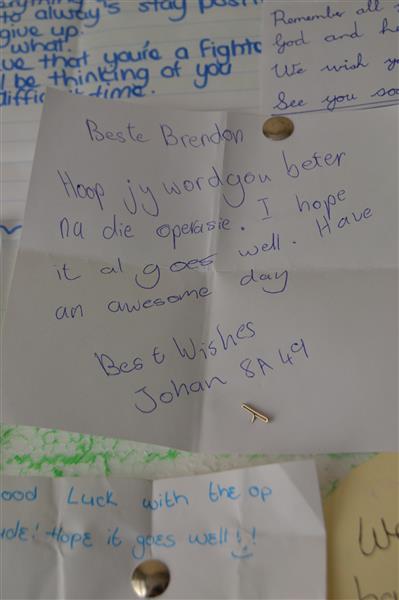 to always stay
give up.
what.
that you're a
be thinking of you
time.
Remember all
God and
We wish
See you
Beste Brendon
Hoop jy word gou beter
na die operasie. I hope
it al goes well. Have
an awesome day
Best Wishes
Johan 8A 49
Luck with the op
Hope it goes well!!